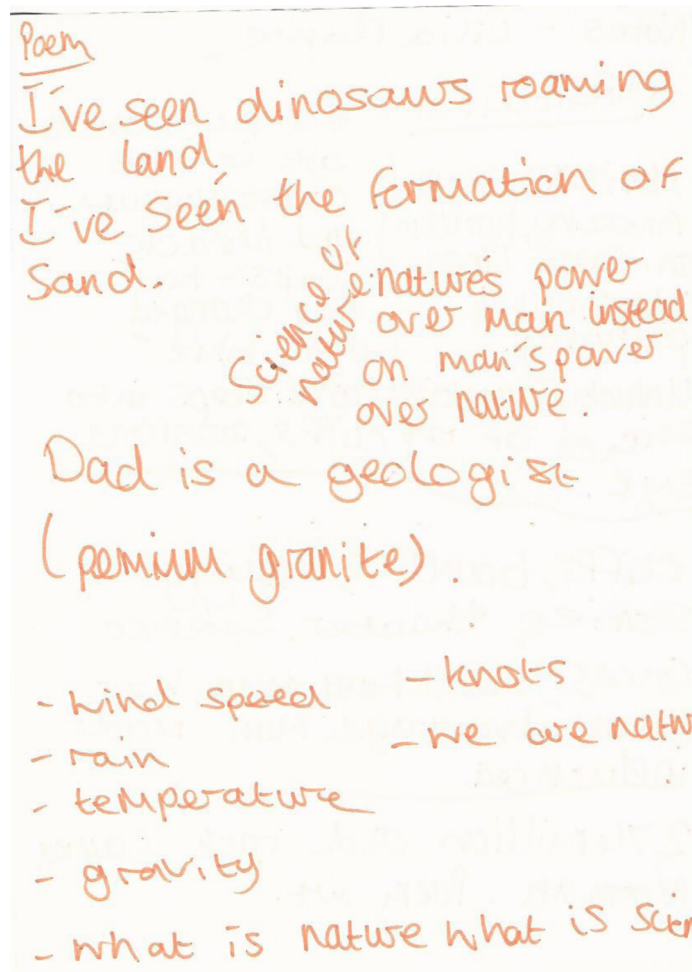 Poem
I've seen dinosaurs roaming
the land
I've seen the formation of
sand.
Science or
nature
natures power
over man instead
on man's power
over nature.
Dad is a geologist
(pemium granite).
- wind speed
- knots
- rain
- we are natu
- temperature
- gravity
- what is nature what is scien